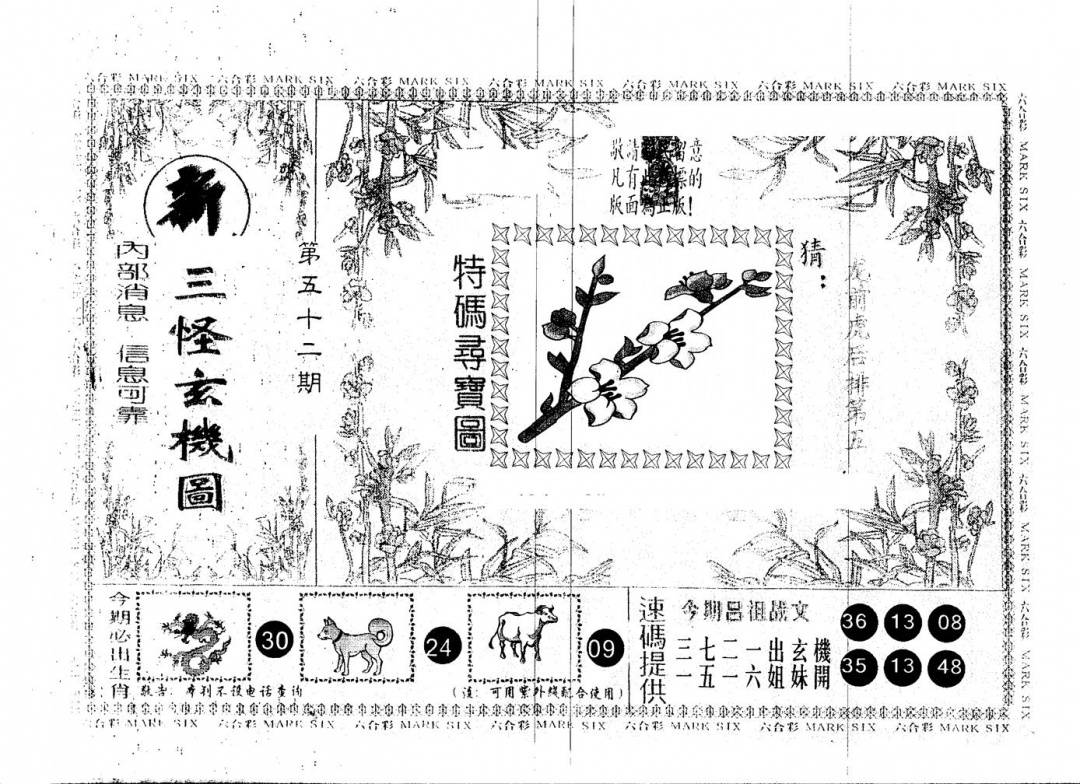 六合彩 MARK SIX 六合彩 MARK SIX 六合彩 MARK SIX 六合彩 MARK SIX 六合彩 MARK SIX 六合彩 MARK SIX 六合彩 MARK SIX
新
三怪玄機圖
內部消息 信息可靠
第五十二期
敬請 留意
凡有 的
版面為正版!
特碼尋寶圖
猜：
龙前虎后排第五
六合彩 MARK SIX 六合彩 MARK SIX 六合彩 MARK SIX 六合彩 MARK SIX 六合彩 MARK SIX
今期必出生肖
30
24
09
敬告：本刊不设电话查询
(注：可用紫外线配合使用)
速碼提供
今期吕祖战文
三七二一出玄機
一五一六姐妹開
36 13 08
35 13 48
六合彩 MARK SIX 六合彩 MARK SIX 六合彩 MARK SIX 六合彩 MARK SIX 六合彩 MARK SIX 六合彩 MARK SIX 六合彩 MARK SIX